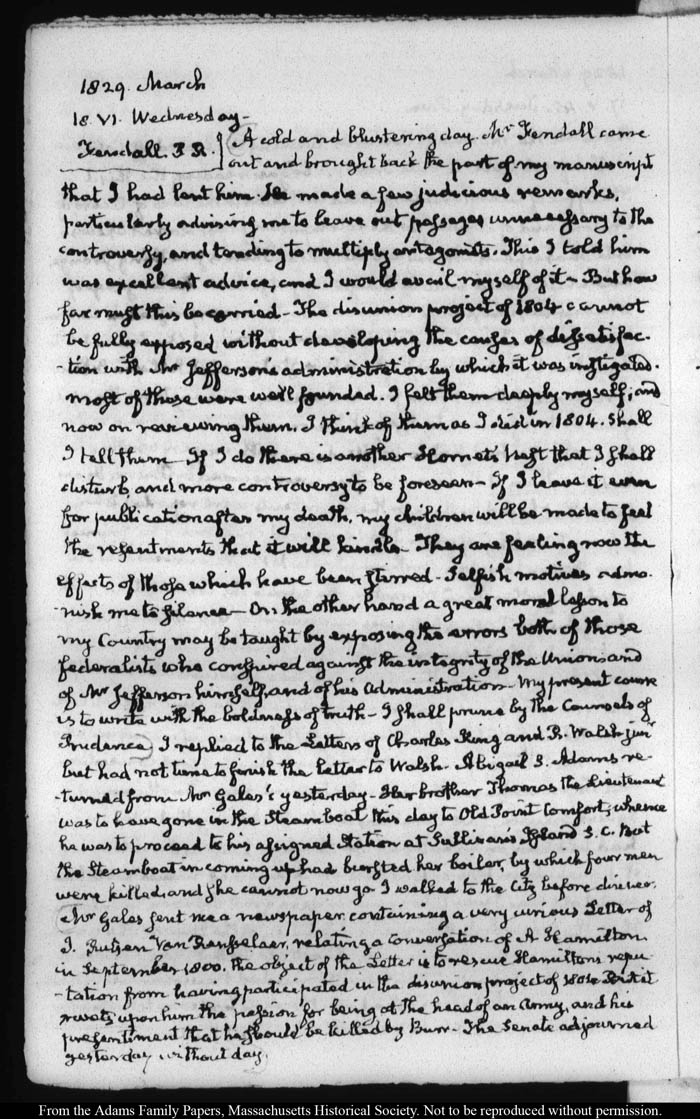 1829. March
18. VI. Wednesday-
Fendall. P. R. A cold and blustering day. Mr Fendall came
out and brought back the part of my manuscript
that I had lent him. He made a few judicious remarks,
particularly advising me to leave out passages unnecessary to the
controversy, and tending to multiply antagonists. This I told him
was excellent advice, and I would avail myself of it- But how
far must this be carried- The disunion project of 1804 cannot
be fully exposed without developing the causes of dissatisfac-
-tion with Mr Jefferson's administration by which it was instigated.
most of those were well founded. I felt them deeply myself; and
now on reviewing them, I think of them as I did in 1804. Shall
I tell them If I do there is another Hornet's Nest that I shall
disturb, and more controversy to be foreseen- If I leave it even
for publication after my death, my children will be made to feel
the resentments that it will kindle- They are feeling now the
effects of those which have been stirred- Selfish motives admo-
-nish me to silence- On the other hand a great moral lesson to
my Country may be taught by exposing the errors both of those
federalists who conspired against the integrity of the Union, and
of Mr Jefferson himself, and of his Administration- My present course
is to write with the boldness of truth- I shall prune by the Counsels of
Prudence, I replied to the Letters of Charles King and R. Walsh junr
but had not time to finish the letter to Walsh- Abigail S. Adams re-
-turned from Mr Gales's yesterday- Her brother Thomas the Lieutenant
was to have gone in the Steamboat this day to Old Point Comfort, whence
he was to proceed to his assigned Station at Sullivan's Island S.C. But
the Steamboat in coming up had bursted her boiler, by which four men
were killed, and she cannot now go- I walked to the City before dinner.
Mr Gales sent me a newspaper containing a very curious Letter of
J. Rutsen Van Rensselaer, relating a conversation of A. Hamilton
in September 1800. the object of the Letter is to rescue Hamilton's repu-
-tation from having participated in the disunion project of 1804 But it
rivets upon him the passion for being at the head of an Army, and his
presentiment that he should be killed by Burr- The Senate adjourned
yesterday without day.
From the Adams Family Papers, Massachusetts Historical Society. Not to be reproduced without permission.